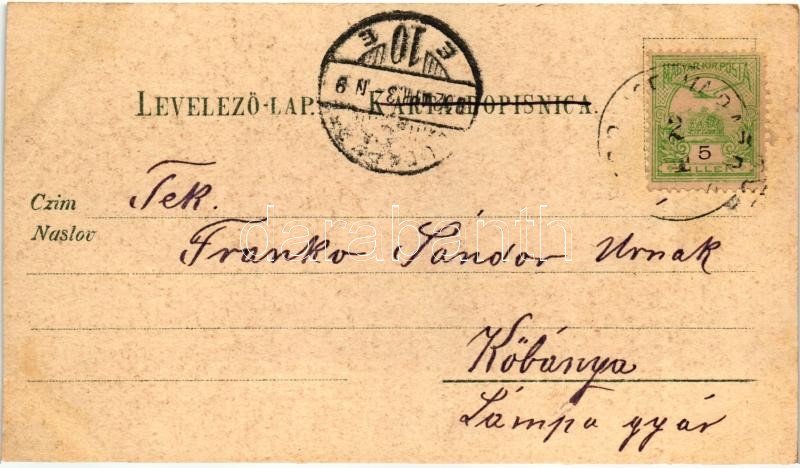 LEVELEZŐ-LAP. KARTA DOPISNICA.
MAGYAR KIR. POSTA
5
10
E E
Czim
Naslov
Tek.
Franko Sándor Urnak
Kőbánya
Lámpa gyár
darabanth